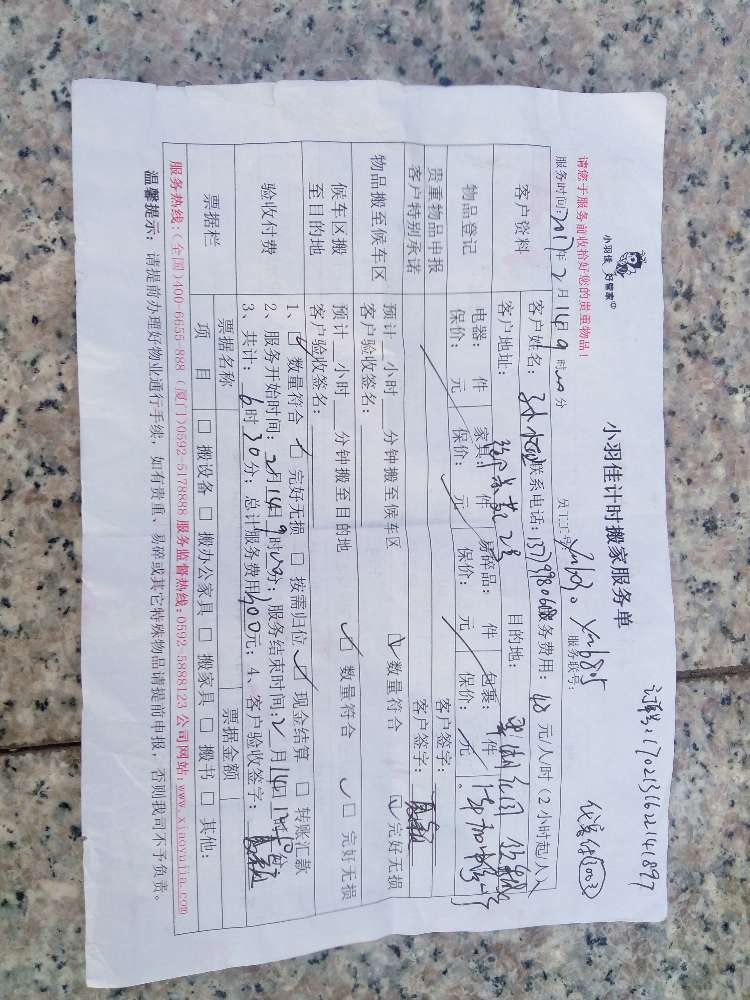 订单号:170213162141897
小羽佳 好管家
小羽佳计时搬家服务单
请您于服务前收拾好您的贵重物品!
服务时间:2017年2月14日9时00分 员工工号: 服务联号:
客户资料 客户姓名: 联系电话: 服务费用:40元/人/时(2小时起/人)
客户地址: 目的地:
物品登记 电器: 件 家具: 件 易碎品: 件 包裹: 件
保价: 元 保价: 元 保价: 元 保价: 元
贵重物品申报 客户签字:
客户特别承诺 客户签字:
物品搬至候车区 预计__小时__分钟搬至候车区 数量符合 完好无损
客户验收签名:
候车区搬至目的地 预计__小时__分钟搬至目的地 数量符合 完好无损
客户验收签名:
验收付费 1、数量符合 完好无损 按需归位 现金结算 转账汇款
2、服务开始时间:2月14日9时00分;服务结束时间:2月14日12时 分
3、共计:6时30分;总计服务费用400元;4、客户验收签字:
票据栏 票据名称 票据金额
项目 搬设备 搬办公家具 搬家具 搬书 其他:
服务热线:(全国)400-6655-888 (厦门)0592-5178888 服务监督热线:0592-5888123 公司网站:www.xiaoyujia.com
温馨提示:请提前办理好物业通行手续,如有贵重、易碎或其它特殊物品请提前申报,否则我司不予负责。